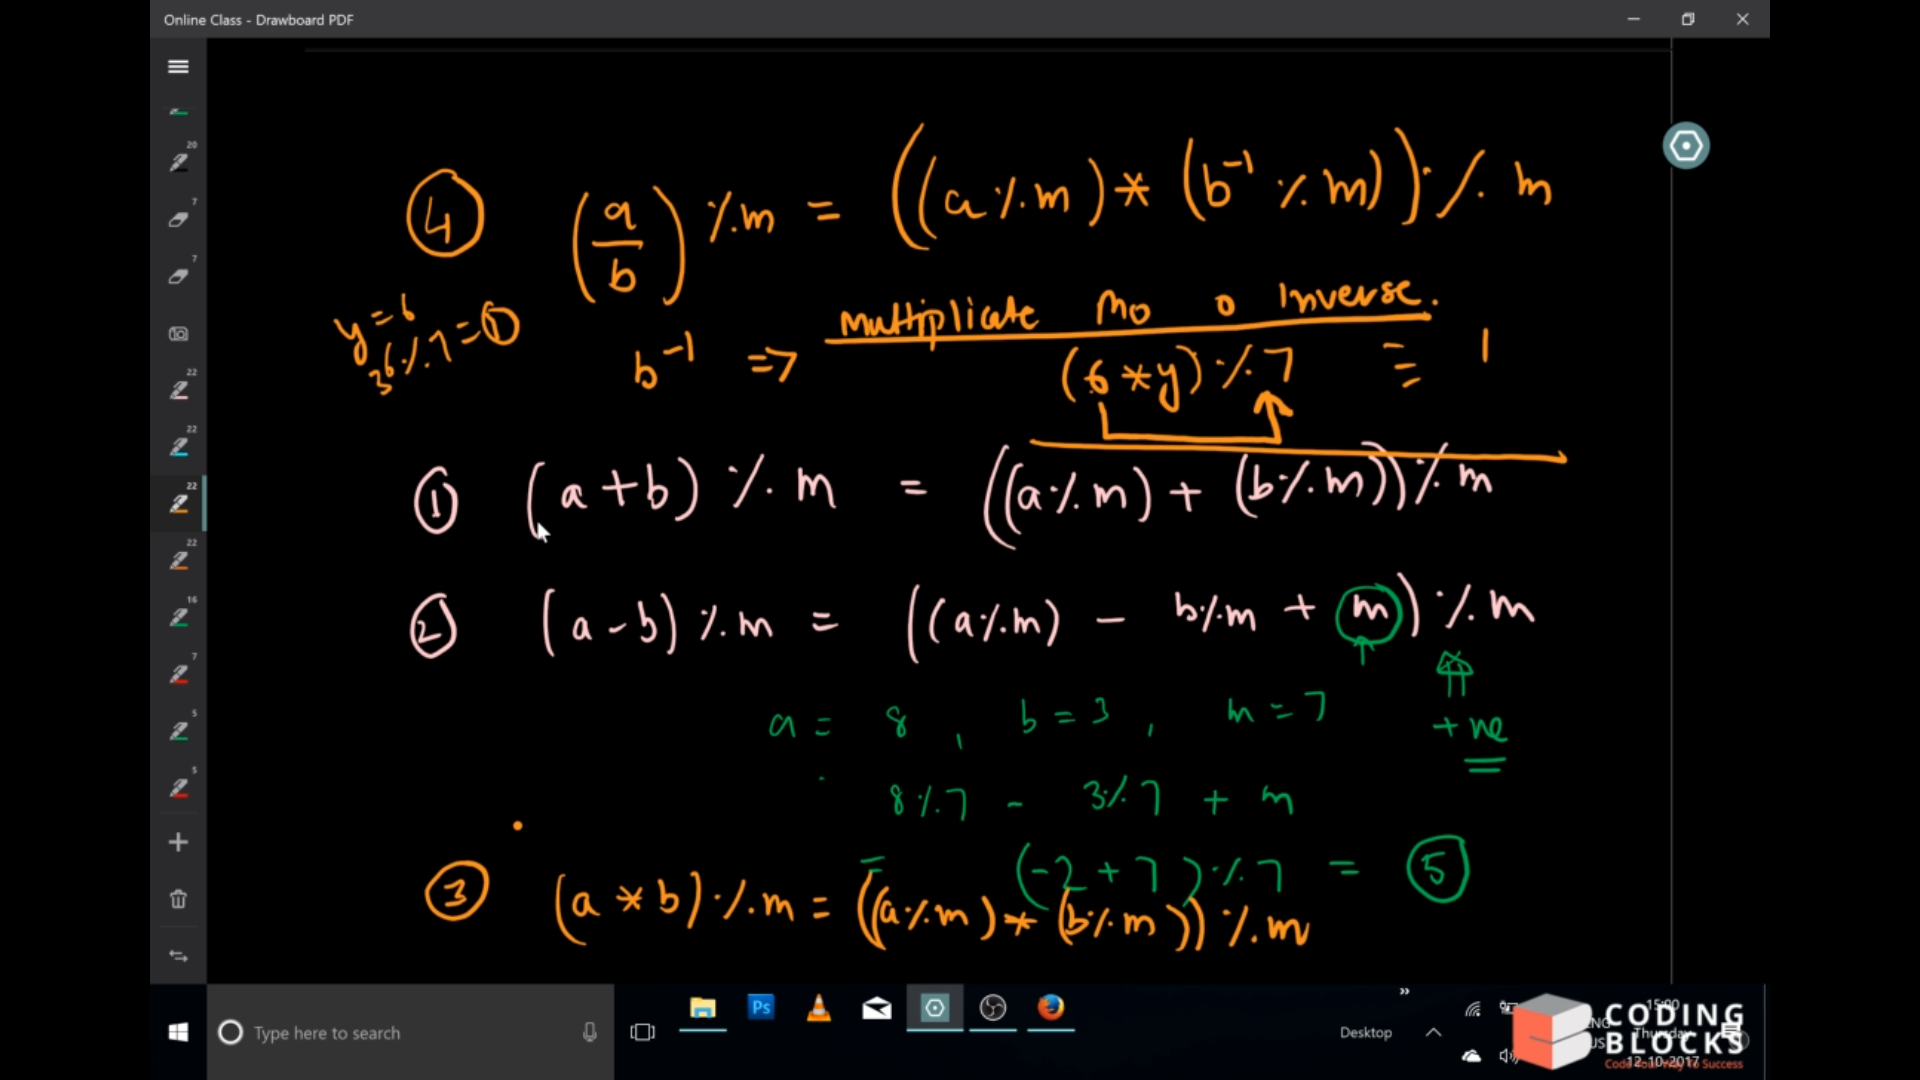 Online Class - Drawboard PDF
20
7
7
22
22
22
22
16
7
5
5
④ (a/b) % m = ((a % m) * (b⁻¹ % m)) % m
y = 6
36 % 7 = ①
Multiplicate Mo o Inverse.
b⁻¹ => (6 * y) % 7 ≡ 1
① (a + b) % m = ((a % m) + (b % m)) % m
② (a - b) % m = ((a % m) - b % m + m) % m
a = 8 , b = 3 , m = 7
+ ne
8 % 7 - 3 % 7 + m
= (-2 + 7) % 7 = ⑤
③ (a * b) % m = ((a % m) * (b % m)) % m
Type here to search
Ps
Desktop
15:00
Thursday
12-10-2017
CODING
BLOCKS
Code Your Way To Success